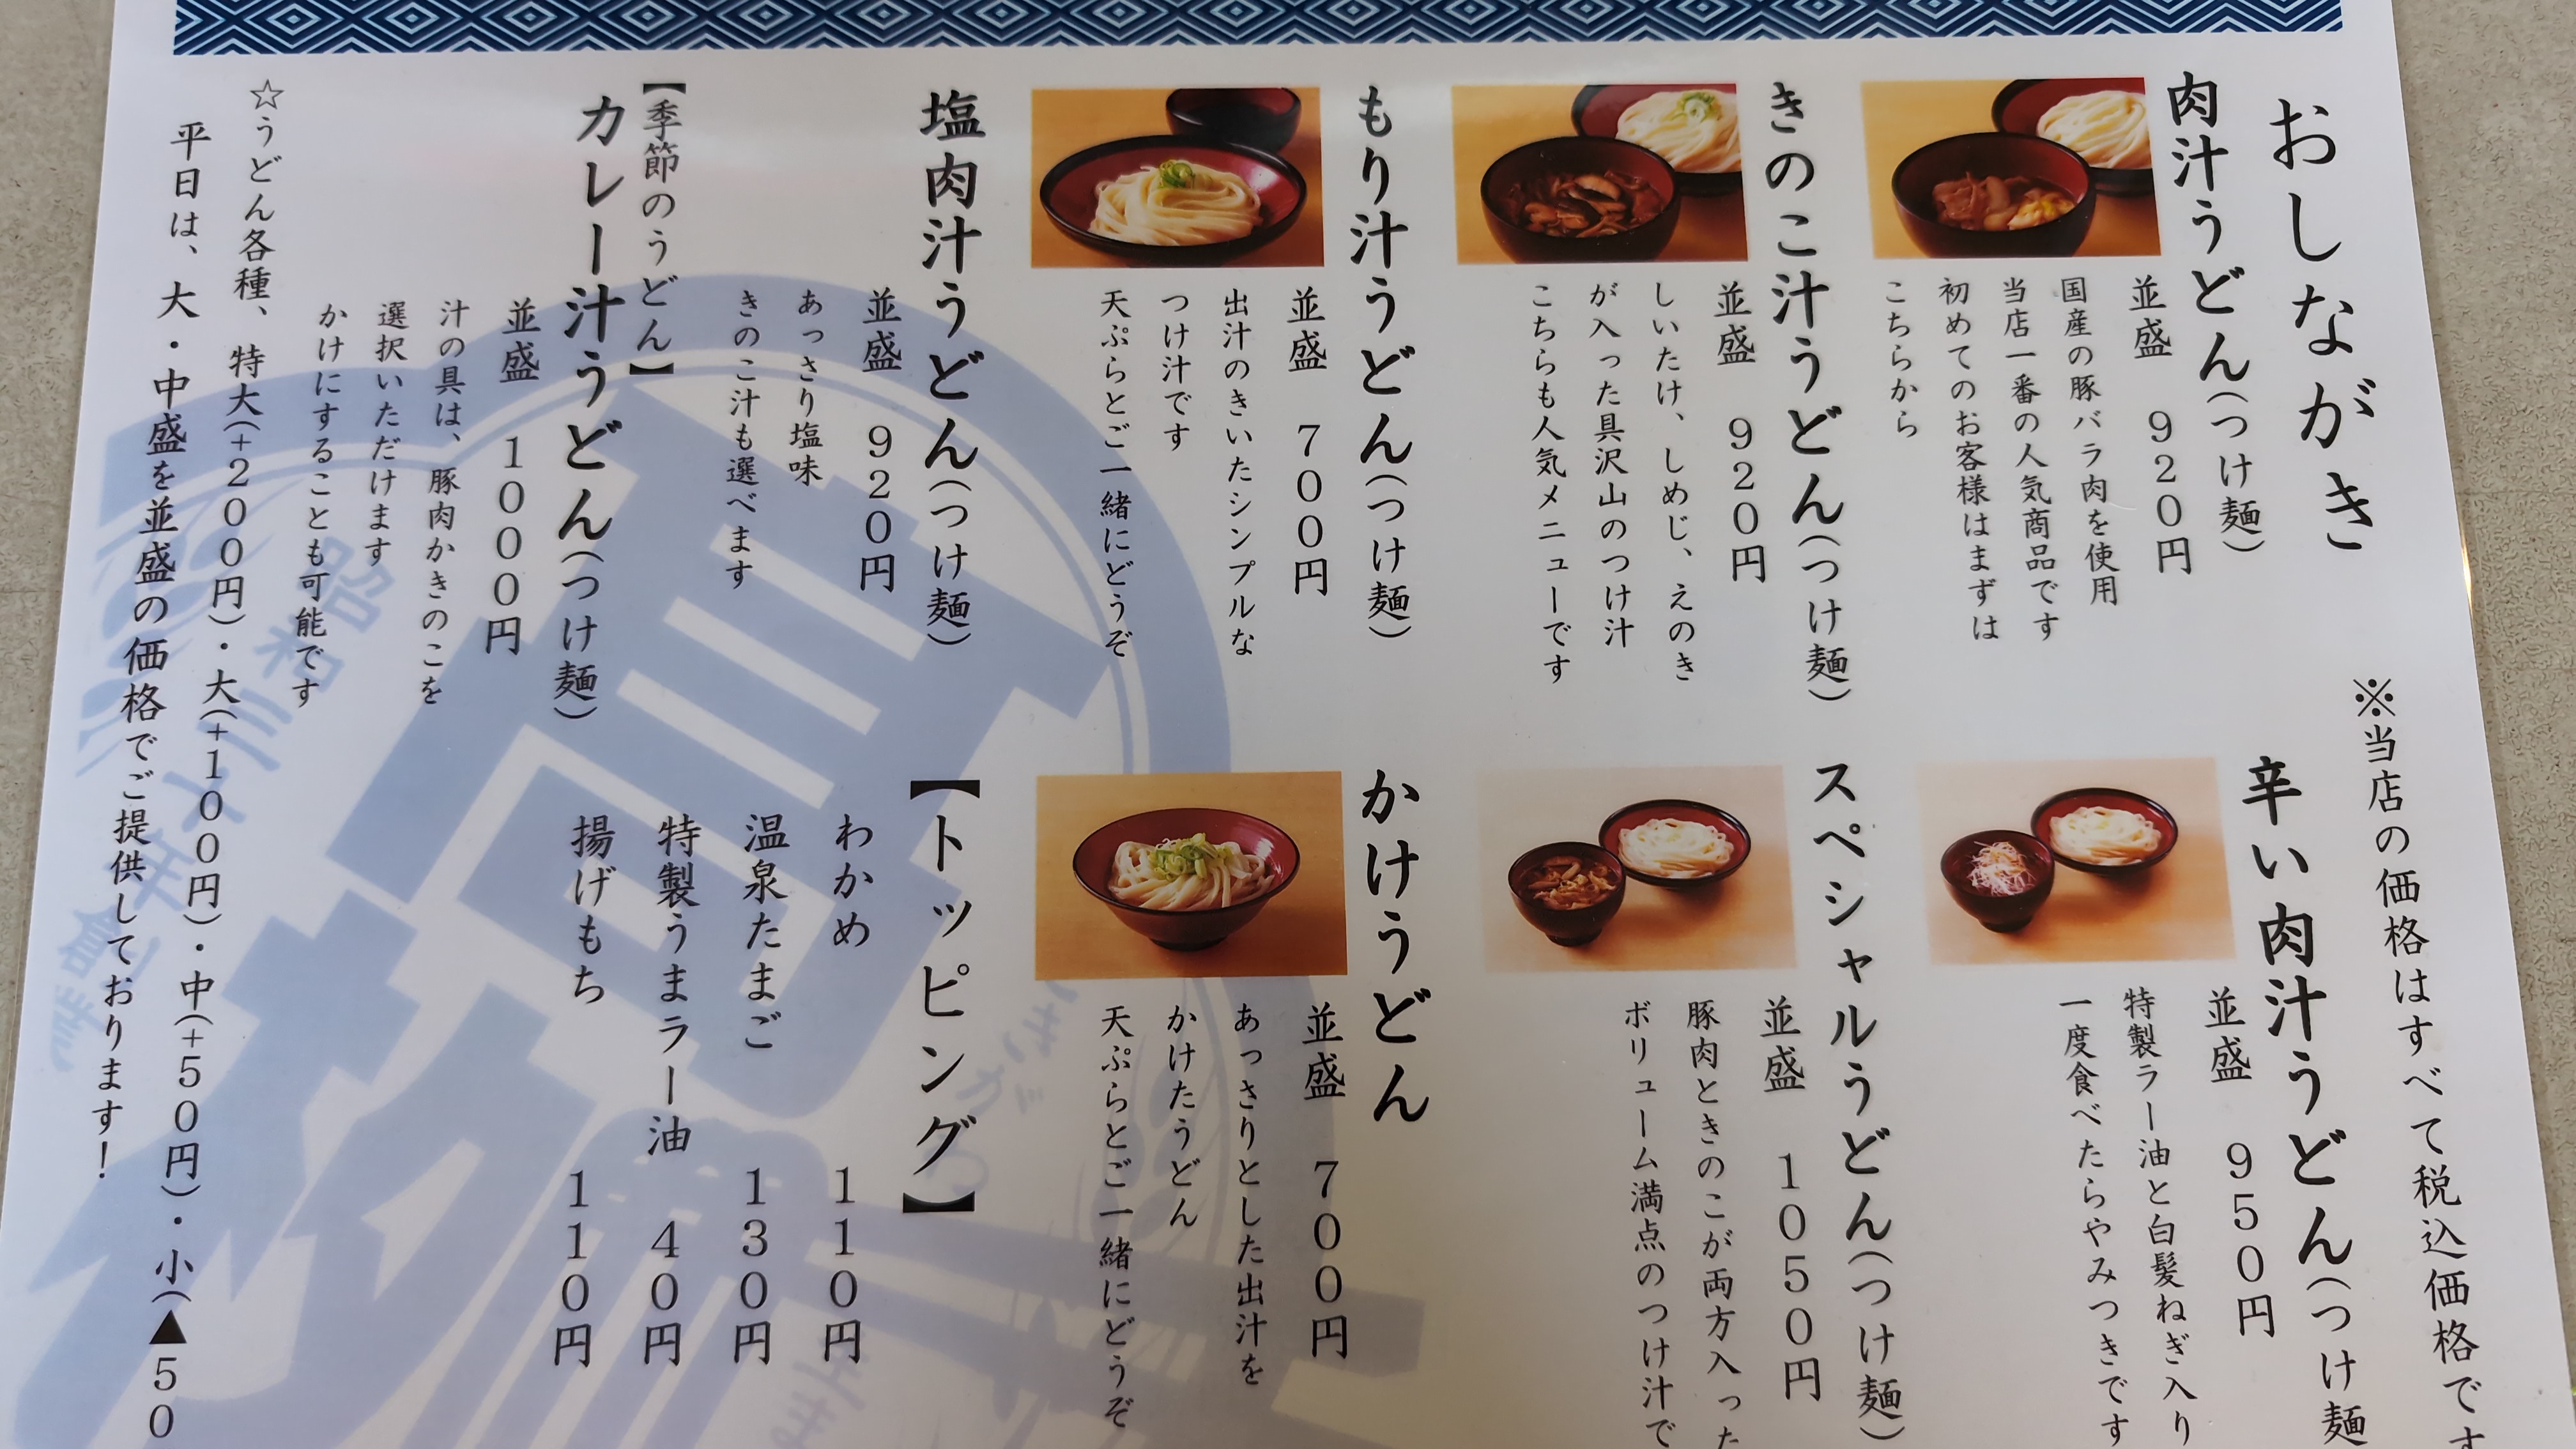 おしながき
※当店の価格はすべて税込価格です
肉汁うどん(つけ麺)
並盛 920円
国産の豚バラ肉を使用
当店一番の人気商品です
初めてのお客様はまずは
こちらから
きのこ汁うどん(つけ麺)
並盛 920円
しいたけ、しめじ、えのき
が入った具沢山のつけ汁
こちらも人気メニューです
もり汁うどん(つけ麺)
並盛 700円
出汁のきいたシンプルな
つけ汁です
天ぷらとご一緒にどうぞ
塩肉汁うどん(つけ麺)
並盛 920円
あっさり塩味
きのこ汁も選べます
【季節のうどん】
カレー汁うどん(つけ麺)
並盛 1000円
汁の具は、豚肉かきのこを
選択いただけます
かけにすることも可能です
辛い肉汁うどん(つけ麺
並盛 950円
特製ラー油と白髪ねぎ入り
一度食べたらやみつきです
スペシャルうどん(つけ麺)
並盛 1050円
豚肉ときのこが両方入った
ボリューム満点のつけ汁で
かけうどん
並盛 700円
あっさりとした出汁を
かけたうどん
天ぷらとご一緒にどうぞ
【トッピング】
わかめ 110円
温泉たまご 130円
特製うまラー油 40円
揚げもち 110円
☆うどん各種、特大(+200円)・大(+100円)・中(+50円)・小(▲50
平日は、大・中盛を並盛の価格でご提供しております!
昭和三十年創業